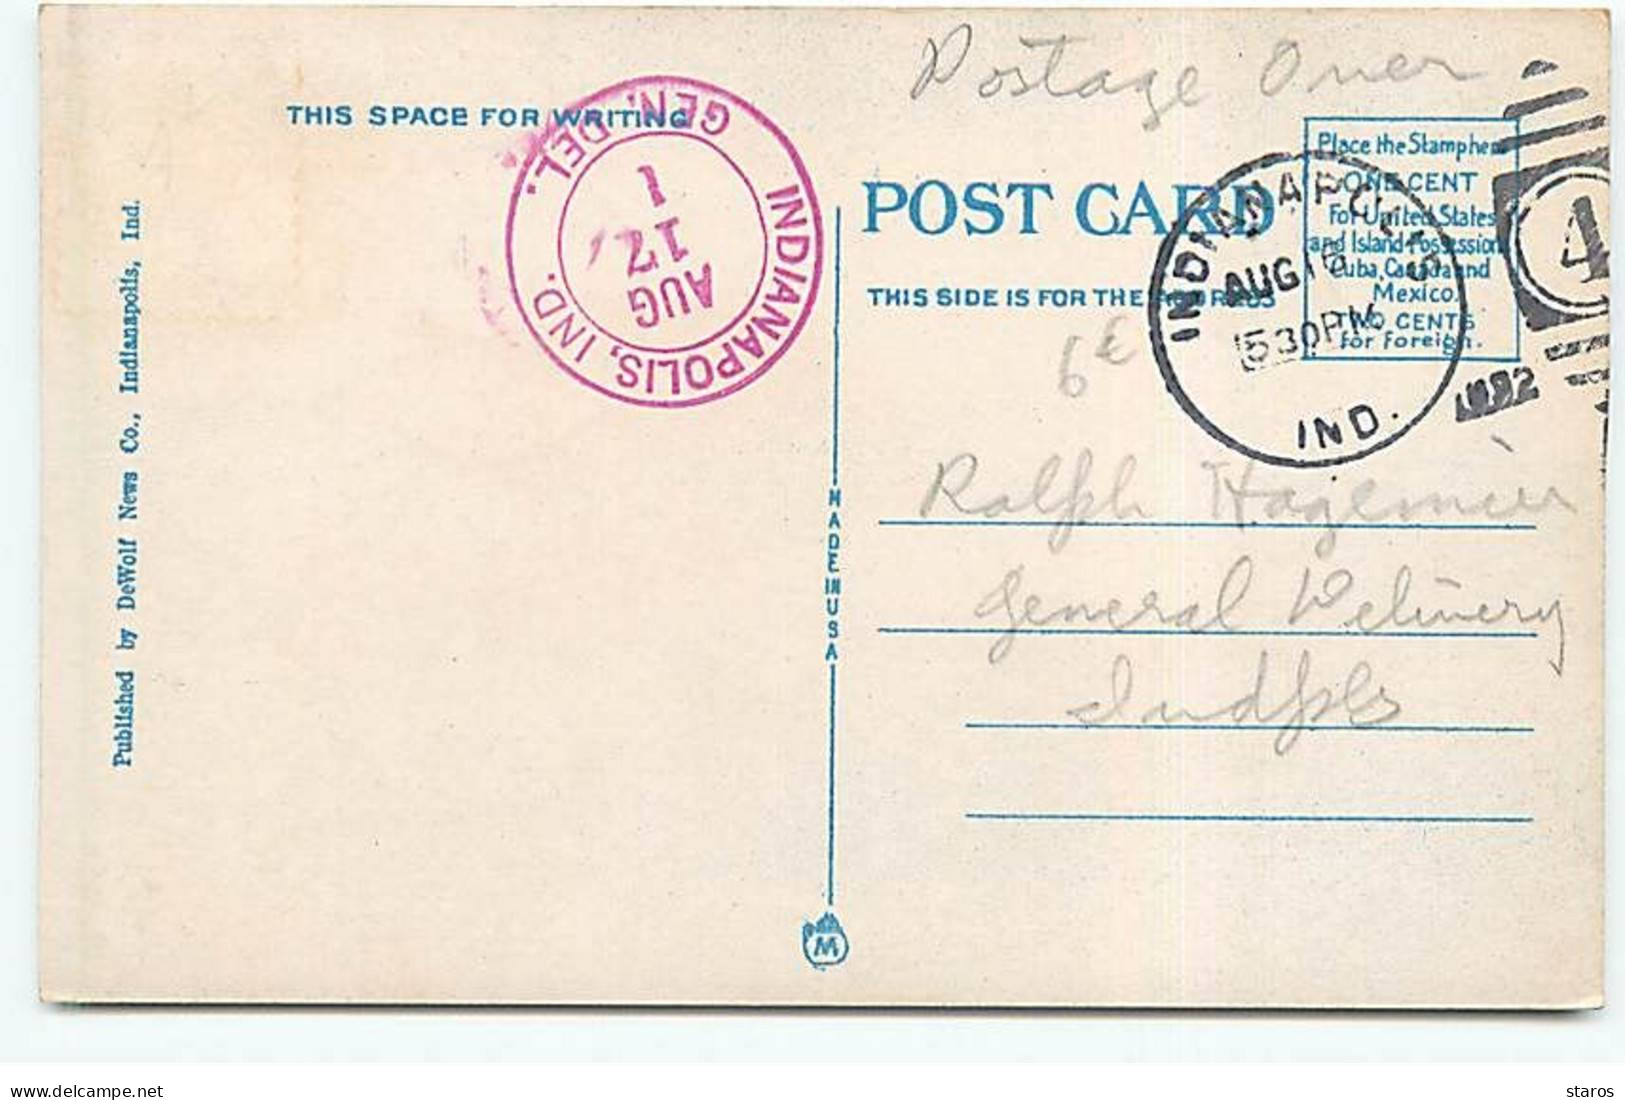 Postage Over
THIS SPACE FOR WRITING
INDIANAPOLIS, IND.
GEN. DEL.
AUG
17
1
Place the Stamp here
ONE CENT
For United States
and Island Possessions
Cuba, Canada and
Mexico.
TWO CENTS
for Foreign.
POST CARD
THIS SIDE IS FOR THE ADDRESS
INDIANAPOLIS
AUG 16
530 PM
IND.
4
6€
Ralph Hagemeier
General Delivery
Indpls
MADE IN USA
Published by DeWolf News Co., Indianapolis, Ind.
M
delcampe.net
staros